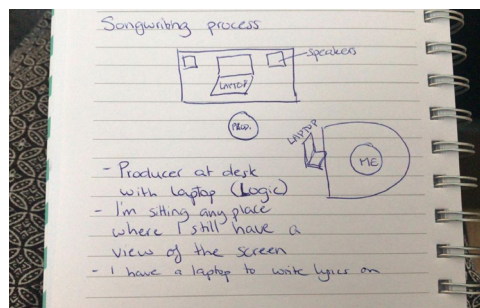 Songwriting process
speakers
LAPTOP
PROD.
LAPTOP
ME
- Producer at desk
with laptop (Logic)
- I'm sitting any place
where I still have a
view of the screen
- I have a laptop to write lyrics on